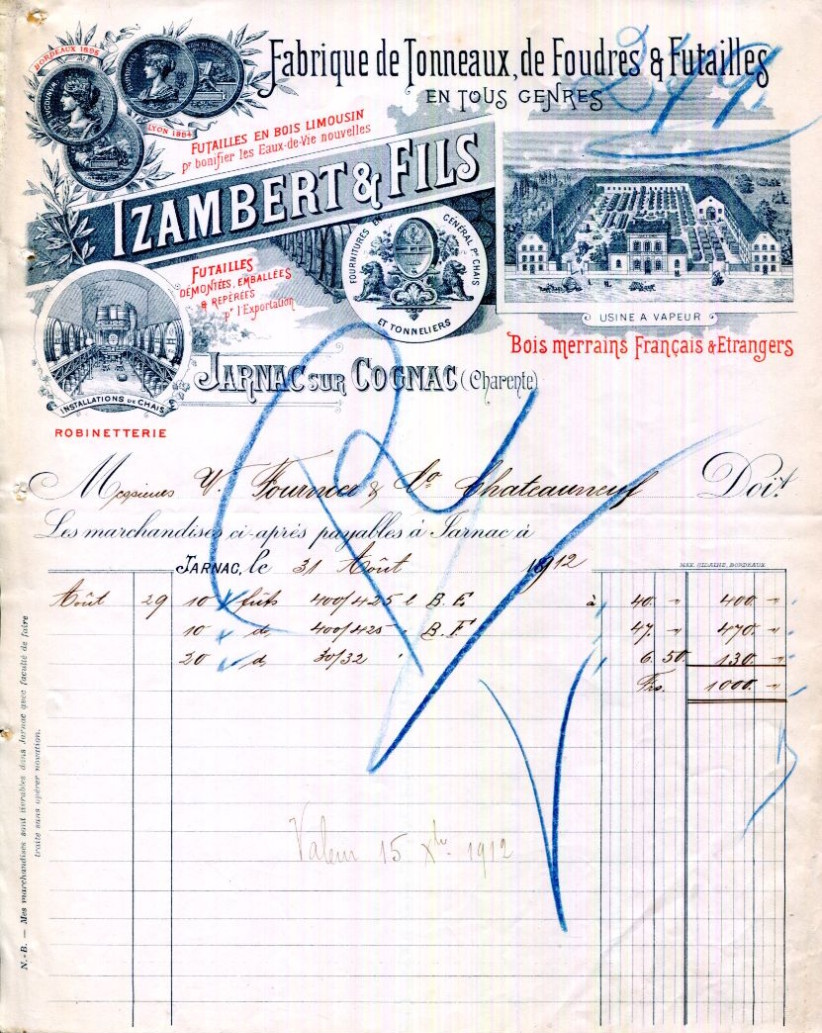 Fabrique de Tonneaux, de Foudres & Futailles
EN TOUS GENRES
279.
BORDEAUX 1895
LYON 1894
FUTAILLES EN BOIS LIMOUSIN
pr bonifier les Eaux-de-Vie nouvelles
IZAMBERT & FILS
FUTAILLES
DÉMONTÉES, EMBALLÉES
& REPÉRÉES
pr l'Exportation
FOURNITURES EN GÉNÉRAL Pr CHAIS
ET TONNELIERS
USINE A VAPEUR
Bois merrains Français & Etrangers
INSTALLATIONS DE CHAIS
JARNAC SUR COGNAC (Charente)
ROBINETTERIE
Messieurs V. Fournier & Co Chateauneuf Doit
Les marchandises ci-après payables à Jarnac à
JARNAC, le 31 Août 1912
Août 29 10 fûts 400/425 l B. E. à 40. " 400. "
10 d 400/425 " B. F. " 47. " 470. "
20 d 30/32 " " 6.50. 130. "
Frs. 1000. "
Valeur 15 Xbre 1912
N.-B. — Mes marchandises sont livrables dans Jarnac avec faculté de faire
traite sans opérer novation.